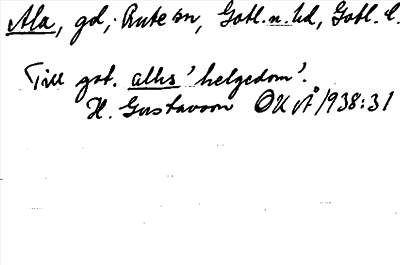 Ala, gd, Rute sn, Gotl. n. hd, Gotl. l.
Till got. alhs 'helgedom'.
H. Gustavson OUÅ 1938:31